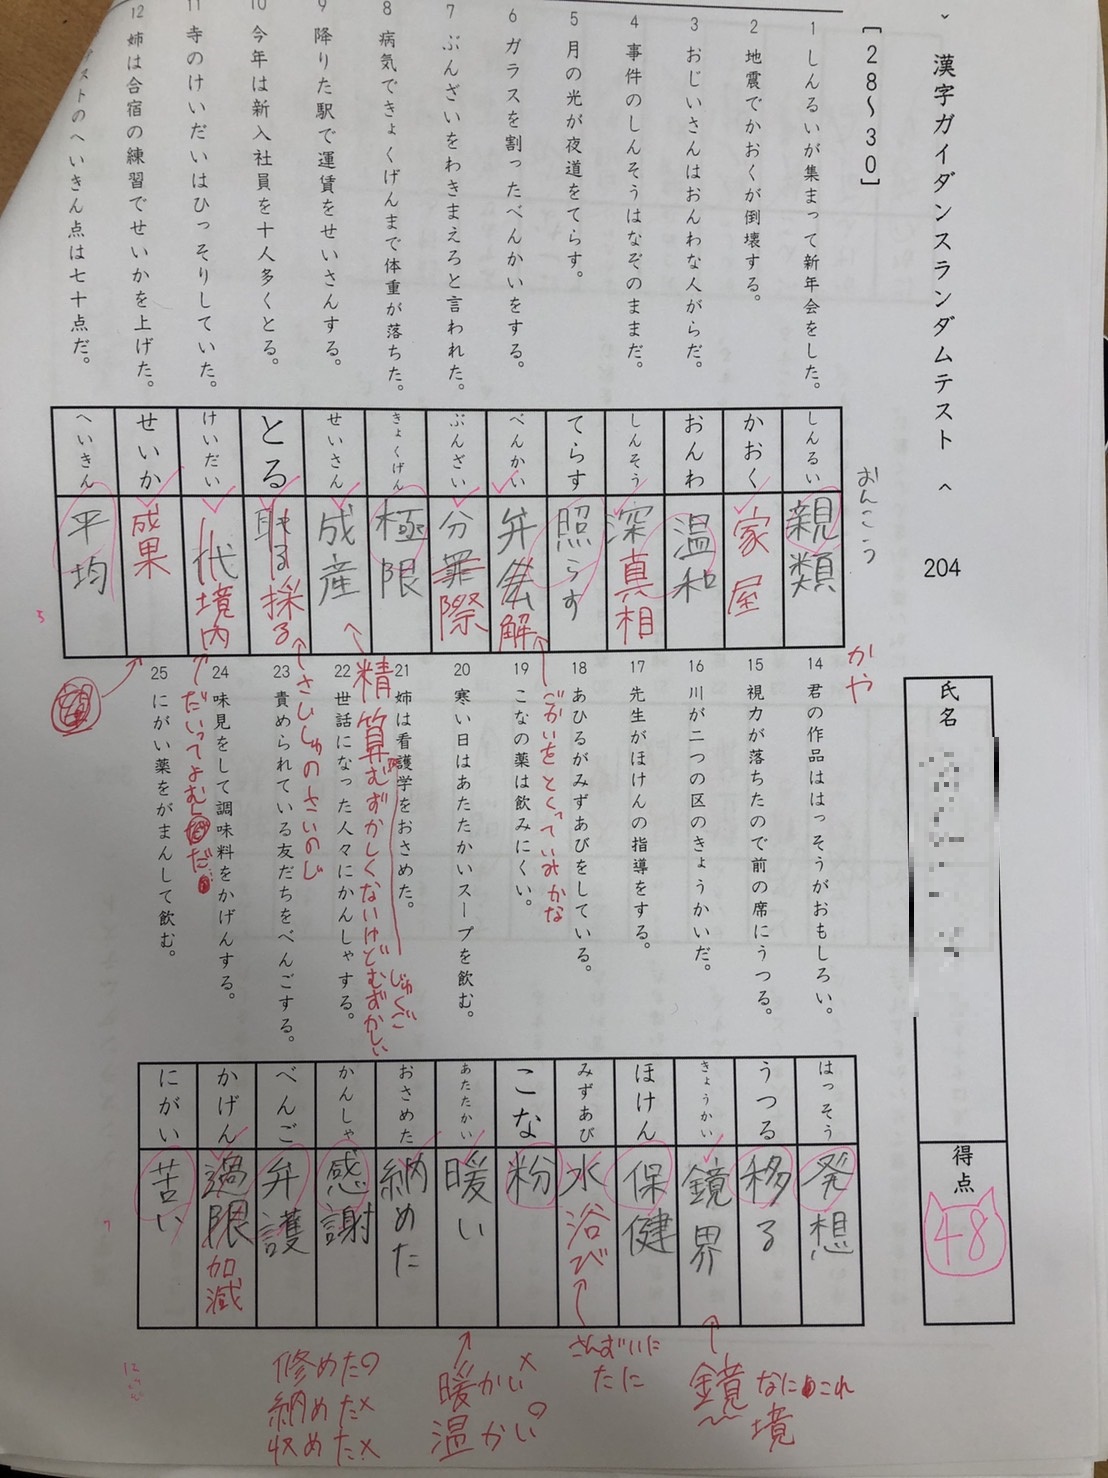 漢字ガイダンスランダムテスト 〈 204
[28〜30]
氏名
得点
48
1 しんるいが集まって新年会をした。
2 地震でかおくが倒壊する。
3 おじいさんはおんわな人がらだ。
4 事件のしんそうはなぞのままだ。
5 月の光が夜道をてらす。
6 ガラスを割ったべんかいをする。
7 ぶんざいをわきまえろと言われた。
8 病気できょくげんまで体重が落ちた。
9 降りた駅で運賃をせいさんする。
10 今年は新入社員を十人多くとる。
11 寺のけいだいはひっそりしていた。
12 姉は合宿の練習でせいかを上げた。
ストのへいきん点は七十点だ。
しんるい 親類
かおく 家屋
おんわ 温和
しんそう 深 真相
てらす 照らす
べんかい 弁 解
ぶんざい 分罪 際
きょくげん 極限
せいさん 成産
とる 取る 採る
けいだい 代 境内
せいか 成果
へいきん 平均
おんこう
かや
ごかいをとくっていみかな
精算むずかしくないけどむずかしい
じゅくご
さいしゅのさいのじ
だいってよむ だ
14 君の作品ははっそうがおもしろい。
15 視力が落ちたので前の席にうつる。
16 川が二つの区のきょうかいだ。
17 先生がほけんの指導をする。
18 あひるがみずあびをしている。
19 こなの薬は飲みにくい。
20 寒い日はあたたかいスープを飲む。
21 姉は看護学をおさめた。
22 世話になった人々にかんしゃする。
23 責められている友だちをべんごする。
24 味見をして調味料をかげんする。
25 にがい薬をがまんして飲む。
はっそう 発想
うつる 移る
きょうかい 鏡界
ほけん 保健
みずあび 水浴び
こな 粉
あたたかい 暖い
おさめた 納めた
かんしゃ 感謝
べんご 弁護
かげん 過限 加減
にがい 苦い
鏡 なにこれ
境
さんずいに
たに
暖かい×
温かい○
修めた○
納めた×
収めた×